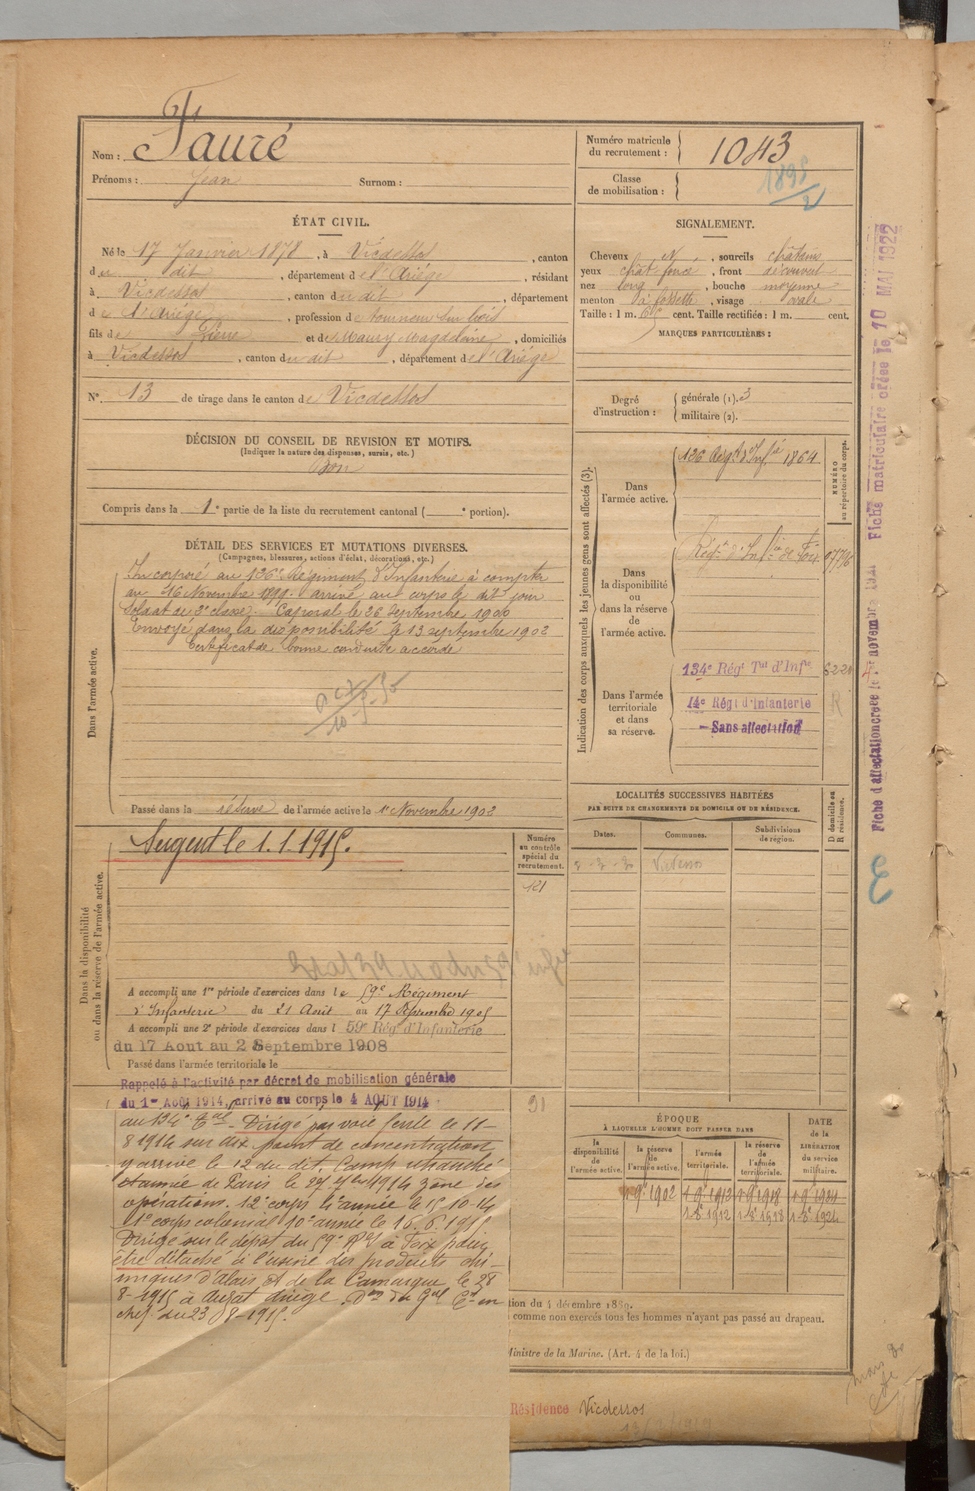 Nom : Fauré
Prénoms : Jean Surnom :
Numéro matricule du recrutement : 1043
Classe de mobilisation :
ÉTAT CIVIL.
Né le 17 Janvier 1878, à Vicdessos, canton
du dit, département de l'Ariège, résidant
à Vicdessos, canton du dit, département
de l'Ariège, profession de tourneur sur bois
fils de Pierre et de Maury Magdeleine, domiciliés
à Vicdessos, canton du dit, département de l'Ariège
N° 13 de tirage dans le canton de Vicdessos
DÉCISION DU CONSEIL DE REVISION ET MOTIFS.
(Indiquer la nature des dispenses, sursis, etc.)
Bon
Compris dans la 1e partie de la liste du recrutement cantonal ( e portion).
SIGNALEMENT.
Cheveux N, sourcils châtains
yeux chât foncé, front découvert
nez long, bouche moyenne
menton à fossette, visage ovale
Taille : 1 m. 65 cent. Taille rectifiée : 1 m. cent.
MARQUES PARTICULIÈRES :
Degré d'instruction : générale (1). 3
militaire (2).
Indication des corps auxquels les jeunes gens sont affectés (3).
NUMÉRO au répertoire du corps.
Dans l'armée active.
126 Régt d'Infie 1864
Dans la disponibilité ou dans la réserve de l'armée active.
Régt d'Infie de Foix
Dans l'armée territoriale et dans sa réserve.
134e Régt Tal d'Infie
14e Régt d'Infanterie
Sans affectation
DÉTAIL DES SERVICES ET MUTATIONS DIVERSES.
(Campagnes, blessures, actions d'éclat, décorations, etc.)
Dans l'armée active.
Incorporé au 126e Régiment d'Infanterie à compter
du 16 Novembre 1899. arrivé au corps le dit jour
Soldat de 2e classe. Caporal le 26 Septembre 1900
Envoyé dans la disponibilité le 13 septembre 1902
Certificat de bonne conduite accordé
Passé dans la réserve de l'armée active le 1er Novembre 1902
LOCALITÉS SUCCESSIVES HABITÉES
PAR SUITE DE CHANGEMENTS DE DOMICILE OU DE RÉSIDENCE.
Dates. Communes. Subdivisions de région. D. domicile ou R. résidence.
Vicdessos
Dans la disponibilité ou dans la réserve de l'armée active.
Sergent le 1.1.1915.
Numéro au contrôle spécial du recrutement.
121
A accompli une 1re période d'exercices dans le 59e Régiment
d'Infanterie du 21 Août au 17 Septembre 1905
A accompli une 2e période d'exercices dans l 59e Rég d'Infanterie
du 17 Aout au 2 Septembre 1908
Passé dans l'armée territoriale le
Rappelé à l'activité par décret de mobilisation générale
du 1er Août 1914, arrivé au corps le 4 AOUT 1914
91
au 134e Tal. Dirigé par voie ferrée le 11-
8 1914 sur dix point de concentration
y arrive le 12 du dit. Camp retranché
et armée de Paris le 27 7bre 1914 zone des
opérations. 12e corps 4e année le 15-10-14
1e corps colonial 10e année le 16.6.1915.
Dirigé sur le depot du 59e RI à Foix pour
être détaché à l'usine des produits chi-
miques d'Alais et de la Camargue le 28
8-1915 à Auzat Ariège. Don du Gal Ct en
chef du 23/8-1915.
ÉPOQUE
A LAQUELLE L'HOMME DOIT PASSER DANS
la disponibilité de l'armée active. la réserve de l'armée active. l'armée territoriale. la réserve de l'armée territoriale.
DATE de la LIBÉRATION du service militaire.
1 9e 1902 1 9e 1912 1 9e 1918 1 9e 1924
1-8e 1912 1-8e 1918 1-8e 1924
tion du 4 décembre 1889.
comme non exercés tous les hommes n'ayant pas passé au drapeau.
Ministre de la Marine. (Art. 4 de la loi.)
Résidence Vicdessos
Fiche matriculaire créée le 10 MAI 1922